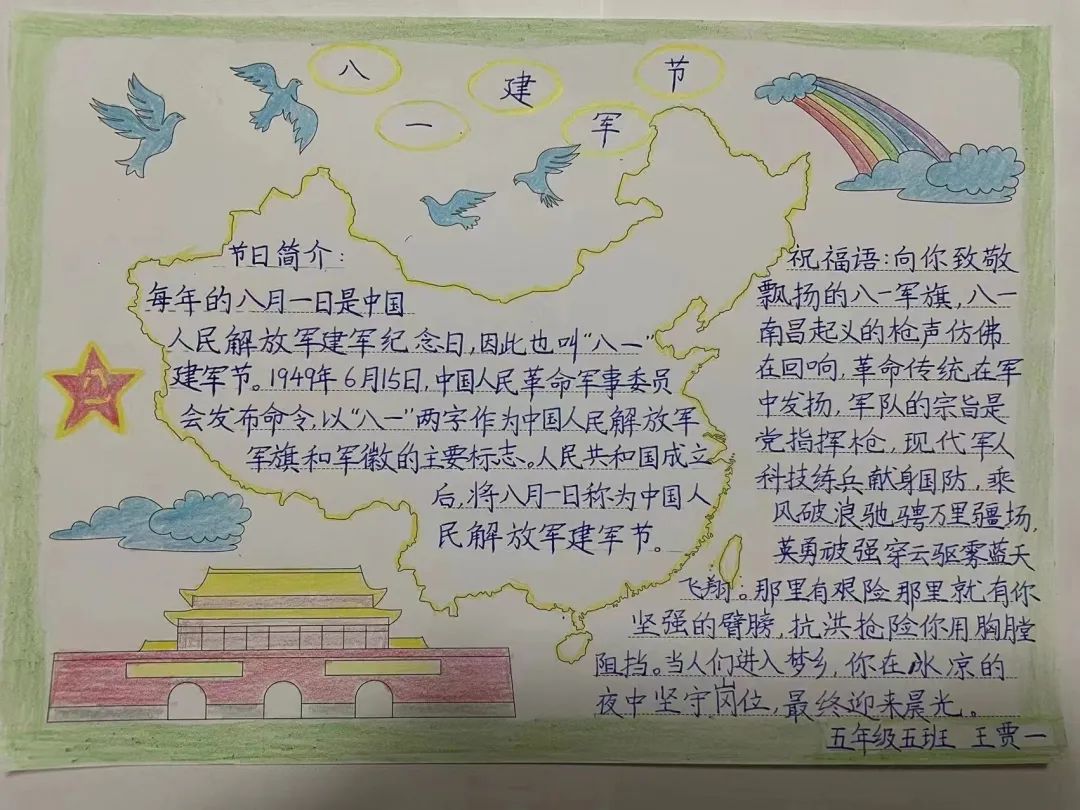 八一建军节
节日简介：
每年的八月一日是中国
人民解放军建军纪念日,因此也叫“八一”
建军节。1949年6月15日,中国人民革命军事委员
会发布命令,以“八一”两字作为中国人民解放军
军旗和军徽的主要标志。人民共和国成立
后,将八月一日称为中国人
民解放军建军节。
祝福语:向你致敬
飘扬的八一军旗,八一
南昌起义的枪声仿佛
在回响,革命传统在军
中发扬,军队的宗旨是
党指挥枪,现代军人
科技练兵献身国防,乘
风破浪驰骋万里疆场,
英勇顽强穿云驱雾蓝天
飞翔。那里有艰险那里就有你
坚强的臂膀,抗洪抢险你用胸膛
阻挡。当人们进入梦乡,你在冰凉的
夜中坚守岗位,最终迎来晨光。
五年级五班 王贾一
八一